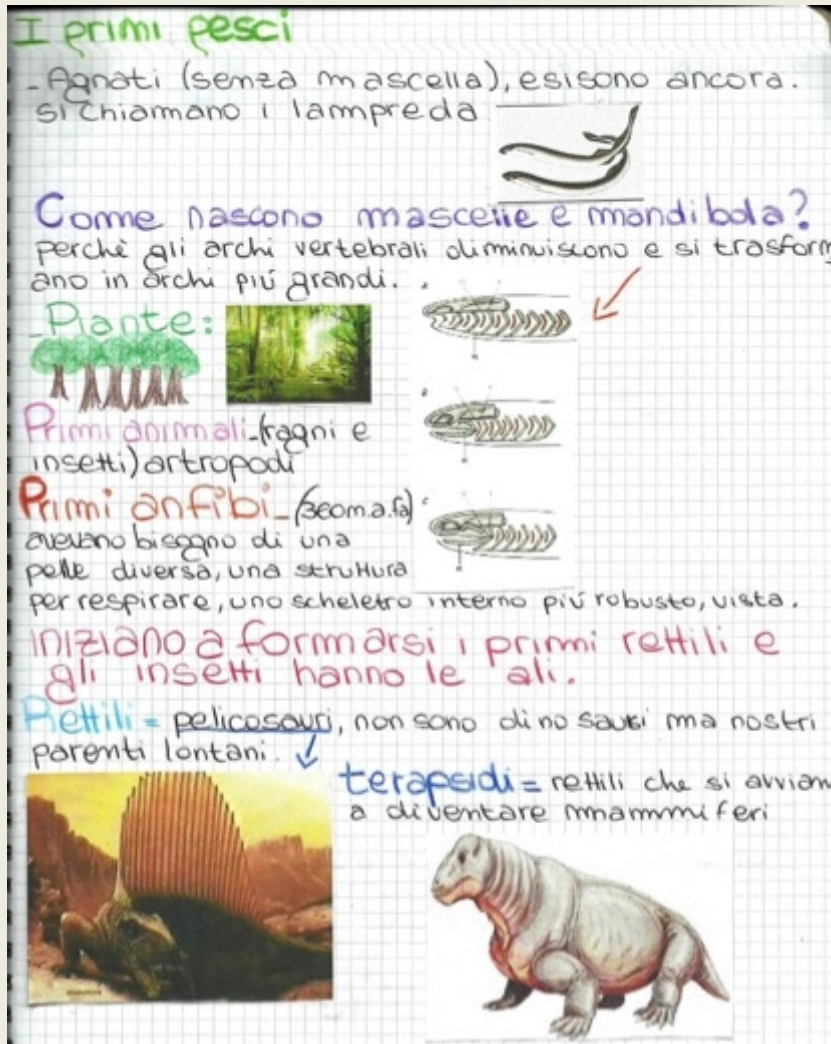 I primi pesci
- Agnati (senza mascella), esisono ancora.
si chiamano i lampreda
Come nascono mascelle e mandibola?
perchè gli archi vertebrali diminuiscono e si trasform
ano in archi più grandi.
- Piante:
Primi animali - (ragni e
insetti) artropodi
Primi anfibi - (360m.a.fa)
avevano bisogno di una
pelle diversa, una struttura
per respirare, uno scheletro interno più robusto, vista.
iniziano a formarsi i primi rettili e
gli insetti hanno le ali.
Rettili = pelicosauri, non sono dinosauri ma nostri
parenti lontani.
terapsidi = rettili che si avvian
a diventare mammiferi